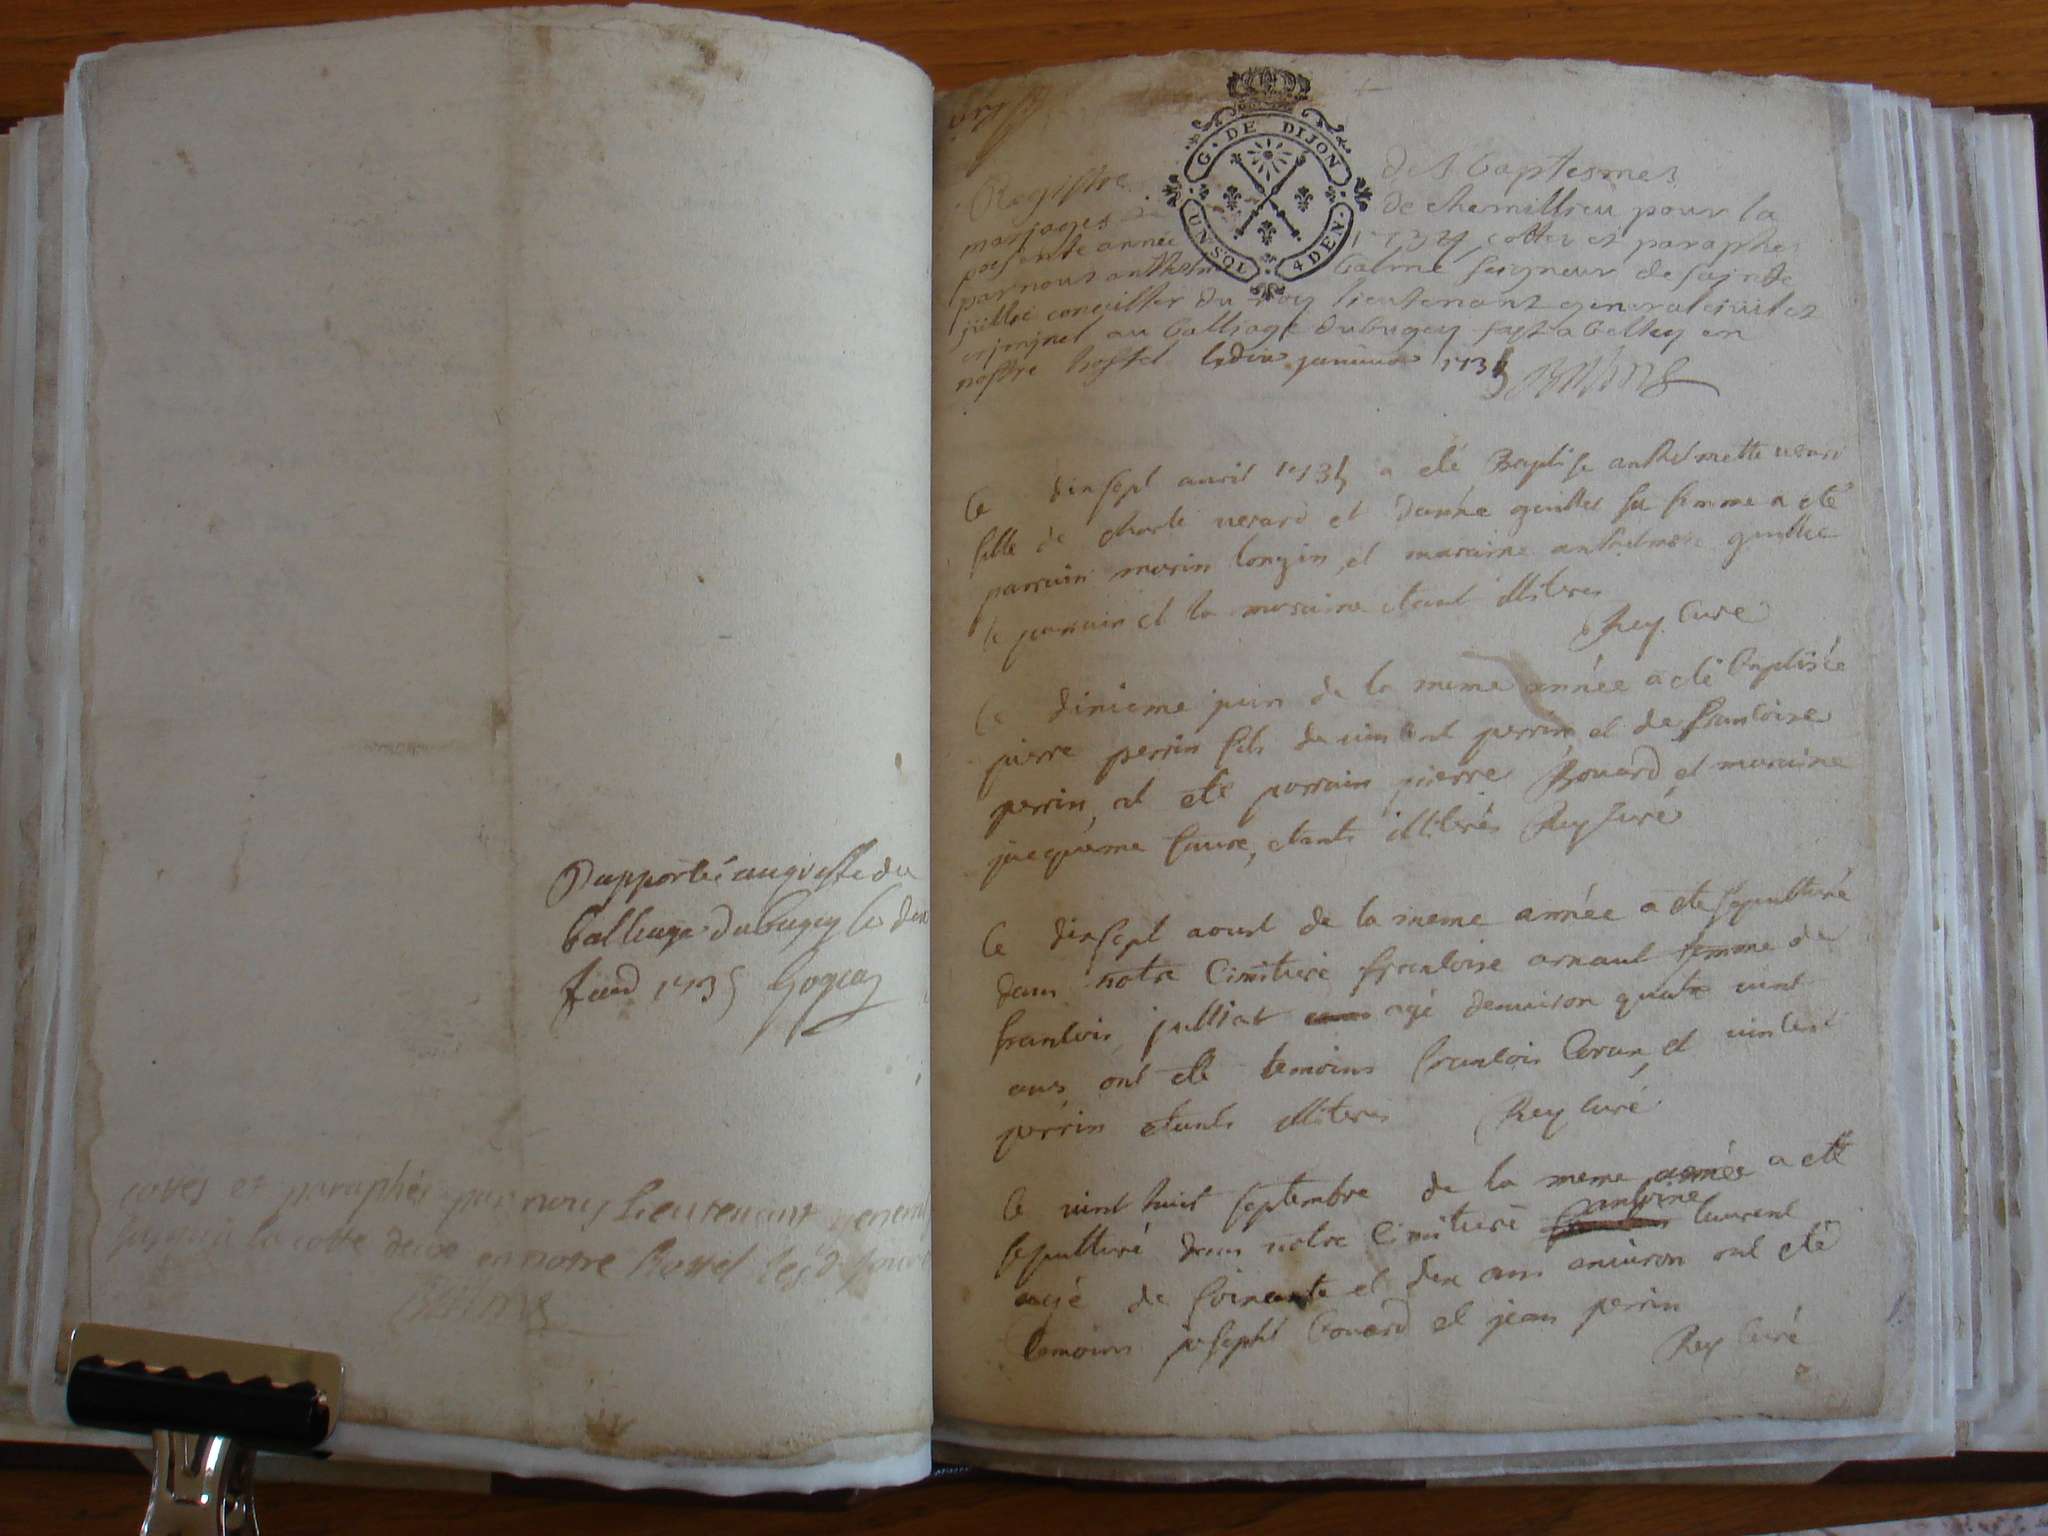 Rapporté au greffe du
balliage du bugey le dix
feud 1735
cottés et paraphés par nous Lieutenant general
jusqu'a la cotte deux en notre hostel lesd. jour
Balme
G. DE DIJON
UN SOL 4 DEN.
Registre des baptesmes
mariages de chemillieu pour la
presente année 1734 cottes et paraphes
par nous anthelme balme seigneur de sainte
jullie conseiller du roy lieutenant general civil et
criminel au balliage du bugey fayt a belley en
nostre hostel le dix janvier 173
Balme
le dix sept avril 173 a été Baptise anthelmette
fille de charle verard et genillet sa femme a eté
parrain marin longin et maraine anthelmette
le parrain et la maraine etant illiteres
Rey Curé
le dixieme juin de la meme année a eté baptisée
pierre perrin fils de vincent perrin et de francoise
perrin, et eté parrain pierre Bouard et maraine
jacqueme faure, etants illiterés Rey Curé
le dix sept aoust de la meme année a ete sepulturé
dans notre Cimitiere francoise arnaut femme de
francois julliat agé denviron quatre vint
ans, ont eté temoins francois et vincent
perrin etants illiteres Rey Curé
le vint huit septembre de la meme année a eté
sepulturé dans notre Cimitiere antoine laurent
agé de soixante et dix ans anviron ont eté
temoins joseph bouard et jean perrin
Rey Curé